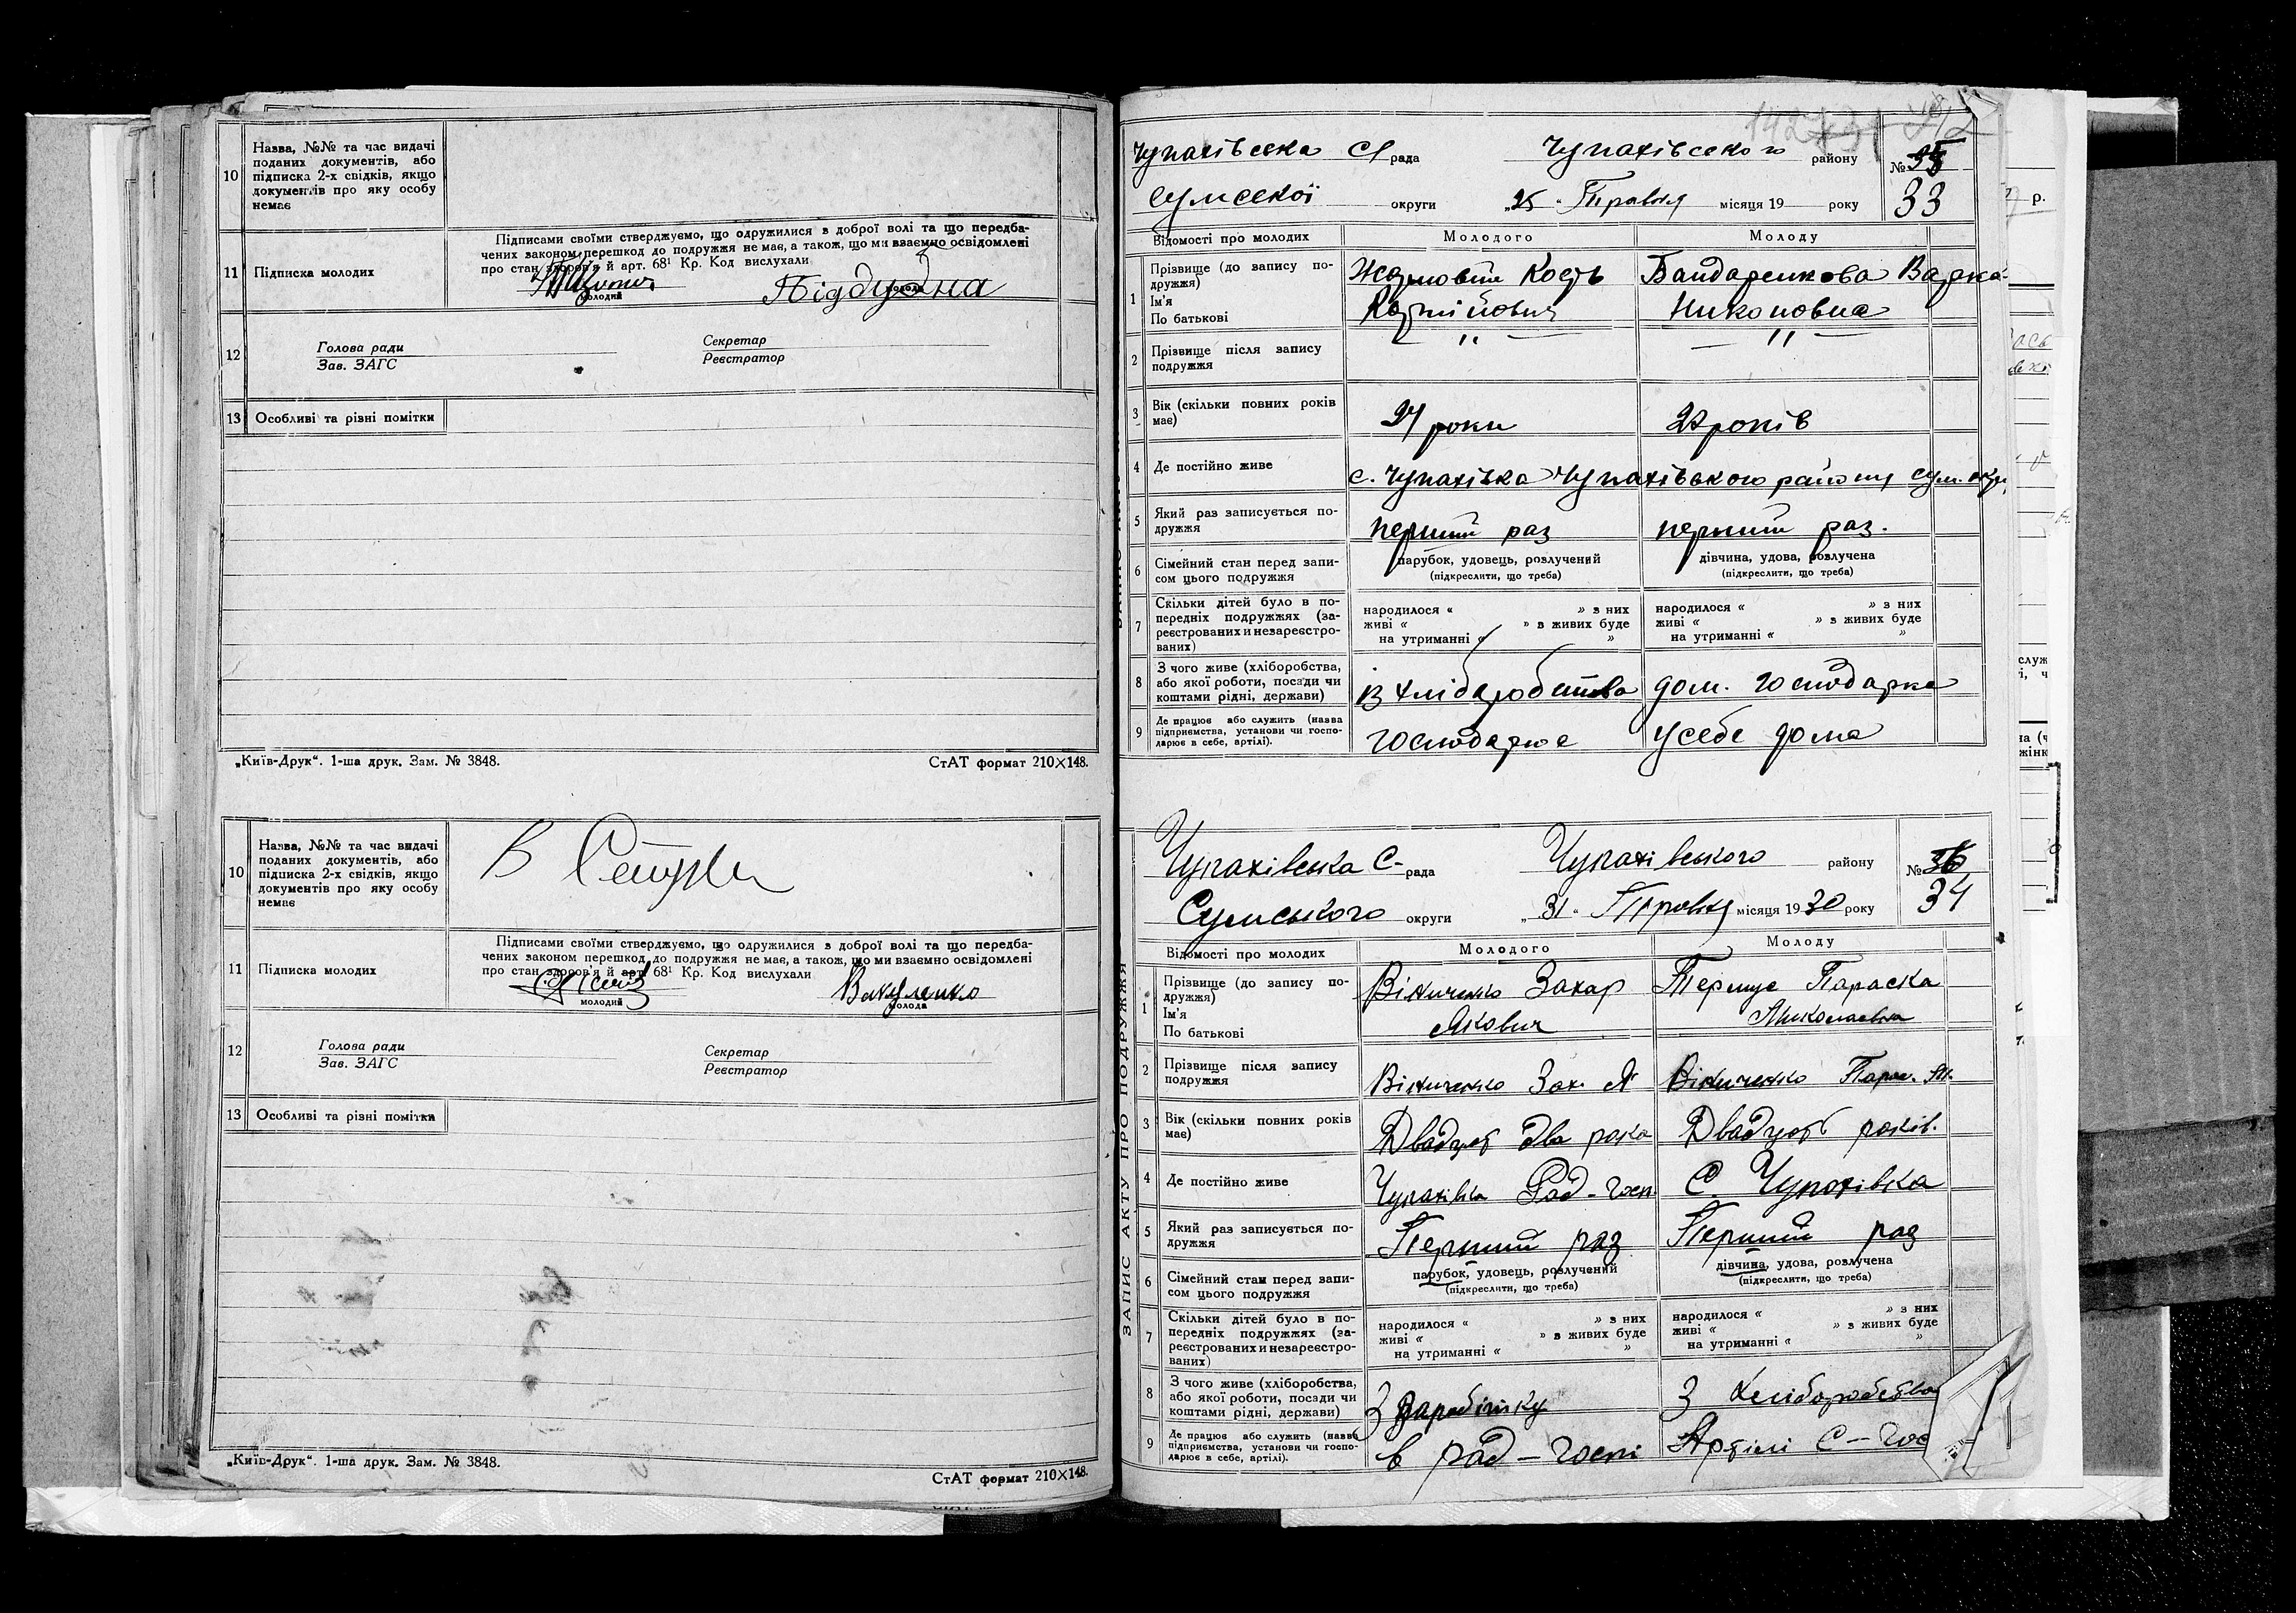 10
Назва, №№ та час видачі
поданих документів, або
підписка 2-х свідків, якщо
документів про яку особу
немає
11
Підписка молодих
Підписами своїми стверджуємо, що одружилися з доброї волі та що передба-
чених законом перешкод до подружжя не має, а також, що ми взаємно освідомлені
про стан здоров'я й арт. 68¹ Кр. Код вислухали
молодий
молода
Піддубна
12
Голова ради
Зав. ЗАГС
Секретар
Реєстратор
13
Особливі та різні помітки
„Київ-Друк“. 1-ша друк. Зам. № 3848.
СтАТ формат 210×148.
10
Назва, №№ та час видачі
поданих документів, або
підписка 2-х свідків, якщо
документів про яку особу
немає
В
11
Підписка молодих
Підписами своїми стверджуємо, що одружилися з доброї волі та що передба-
чених законом перешкод до подружжя не має, а також, що ми взаємно освідомлені
про стан здоров'я й арт. 68¹ Кр. Код вислухали
молодий
Вакуленко
молода
12
Голова ради
Зав. ЗАГС
Секретар
Реєстратор
13
Особливі та різні помітки
„Київ-Друк“. 1-ша друк. Зам. № 3848.
СтАТ формат 210×148.
Чупахівська С/рада Чупахівського району № 35
Сумської округи „25“ Травня місяця 19 року 33
Відомості про молодих Молодого Молоду
1
Прізвище (до запису по-
дружжя)
Ім'я
По батькові
Кость
Бондаренкова Варка
Никоновна
2
Прізвище після запису
подружжя
" "
3
Вік (скільки повних років
має)
24 роки
22 років
4
Де постійно живе
с. Чупахівка Чупахівського району Сум. окру
5
Який раз записується по-
дружжя
перший раз
перший раз.
6
Сімейний стан перед запи-
сом цього подружжя
парубок, удовець, розлучений
(підкреслити, що треба)
дівчина, удова, розлучена
(підкреслити, що треба)
7
Скільки дітей було в по-
передніх подружжях (за-
реєстрованих и незареєстро-
ваних)
народилося « » з них
живі « » в живих буде
на утриманні « »
народилося « » з них
живі « » з живих буде
на утриманні « »
8
З чого живе (хліборобства,
або якої роботи, посади чи
коштами рідні, держави)
із хліборобства
дом. господарка
9
Де працює або служить (назва
підприємства, установи чи госпо-
дарює в себе, артілі).
господарює
у себе дома
ЗАПИС АКТУ ПРО ПОДРУЖЖЯ
Чупахівська С-рада Чупахівського району № 36
Сумського округи „31“ Травня місяця 1930 року 34
Відомості про молодих Молодого Молоду
1
Прізвище (до запису по-
дружжя)
Ім'я
По батькові
Вініченко Захар
Якович
Параска
Миколаевна
2
Прізвище після запису
подружжя
Вініченко Зах. Я
Вініченко Парас. М.
3
Вік (скільки повних років
має)
Двадцят два рока
Двадцять років.
4
Де постійно живе
Чупахівка Рад-госп
С. Чупахівка
5
Який раз записується по-
дружжя
Перший раз
Перший раз
6
Сімейний стан перед запи-
сом цього подружжя
парубок, удовець, розлучений
(підкреслити, що треба)
дівчина, удова, розлучена
(підкреслити, що треба)
7
Скільки дітей було в по-
передніх подружжях (за-
реєстрованих и незареєстро-
ваних)
народилося « » з них
живі « » в живих буде
на утриманні « »
народилося « » з них
живі « » з живих буде
на утриманні « »
8
З чого живе (хліборобства,
або якої роботи, посади чи
коштами рідні, держави)
З заробітку
З хліборобства
9
Де працює або служить (назва
підприємства, установи чи госпо-
дарює в себе, артілі).
в рад-госпі
Артілі С-гос